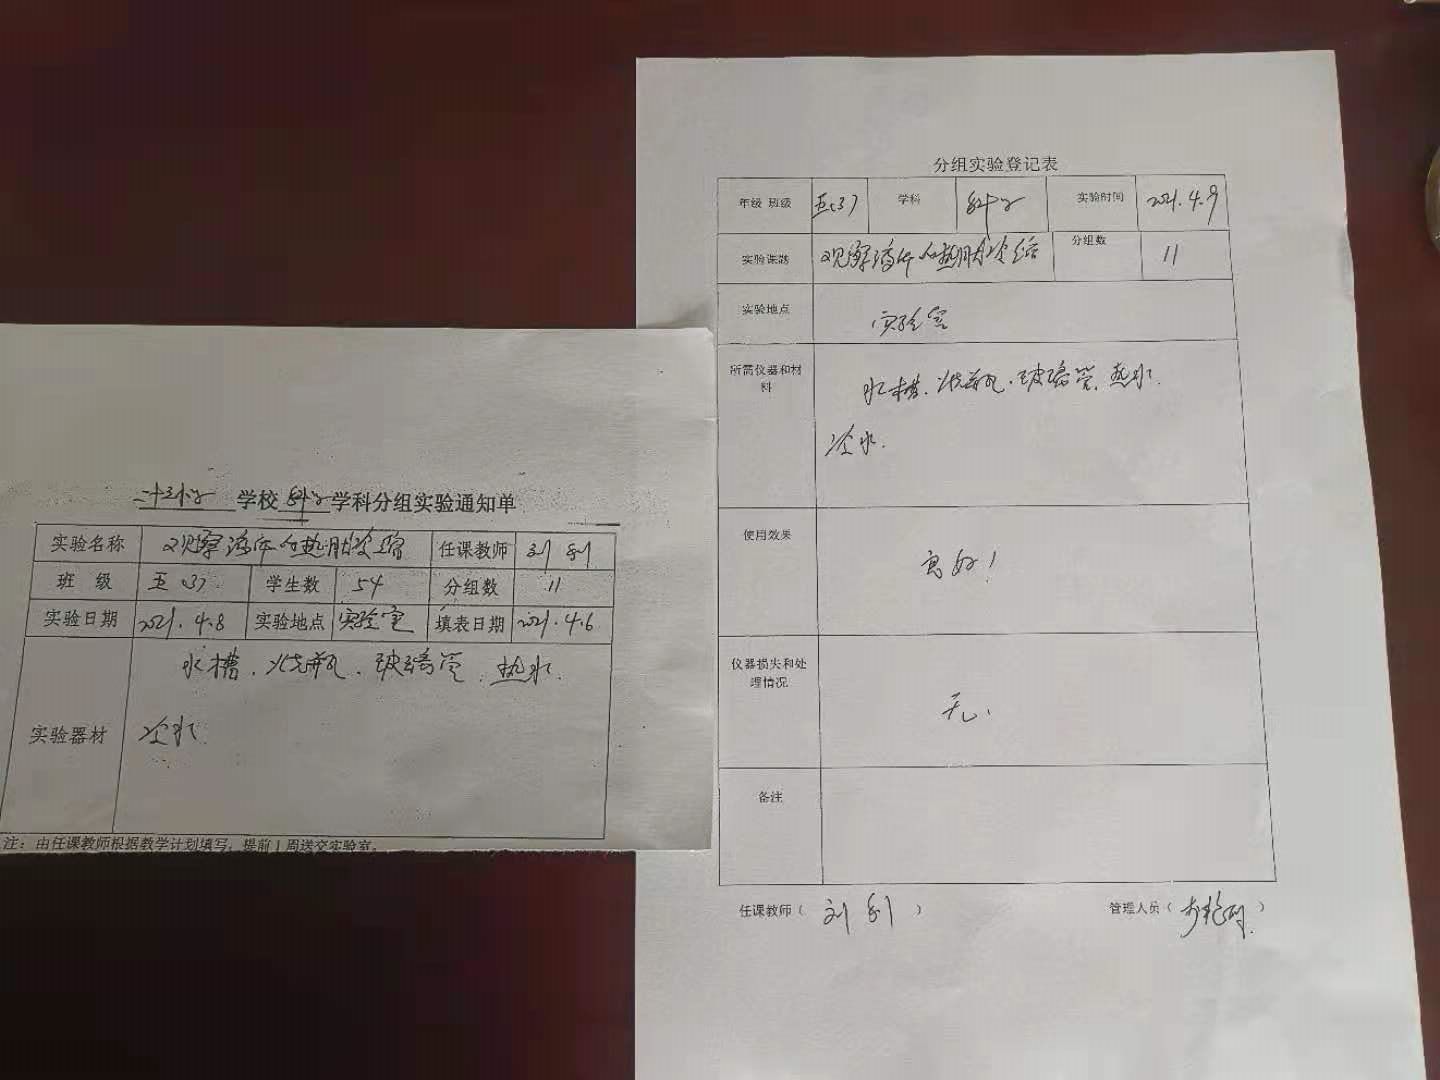 二十三小学 学校 科学 学科分组实验通知单
实验名称 观察液体的热胀冷缩 任课教师 刘
班 级 五(3) 学生数 54 分组数 11
实验日期 2021.4.8 实验地点 实验室 填表日期 2021.4.6
水槽、烧瓶、玻璃管、热水、
实验器材 冷水
注：由任课教师根据教学计划填写，提前1周送交实验室。
分组实验登记表
年级 班级 五(3) 学科 科学 实验时间 2021.4.9
实验课题 观察液体的热胀冷缩 分组数 11
实验地点 实验室
所需仪器和材料 水槽、烧瓶、玻璃管、热水、
冷水.
使用效果 良好！
仪器损失和处理情况 无.
备注
任课教师（ 刘 ） 管理人员（ ）